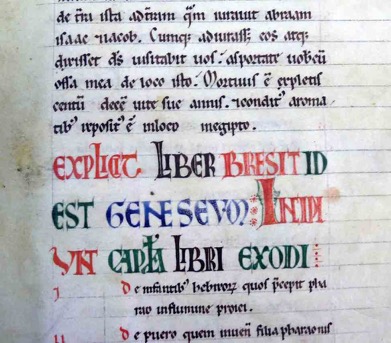 de t̄ra ista ad t̄ram q̄m iuravit abraam
isaac ⁊ iacob. Cumq; adiurass& eos atq;
dixiss& d̄s visitabit vos. asportate vobiscū
ossa mea de loco isto. Mortuus ē expletis
centū decē vite sue annis. ⁊ condit᷒ aroma
tib᷒ reposit᷒ ē in loco in egipto.
EXPLICIT LIBER BRESIT ID
EST GENESEVM INCIPI
VNT CAPITLA LIBRI EXODI
I De infantib᷒ hebreoꝝ quos p̄cepit pha
rao in flumine proici.
II De puero quem inven̄ filia pharaonis